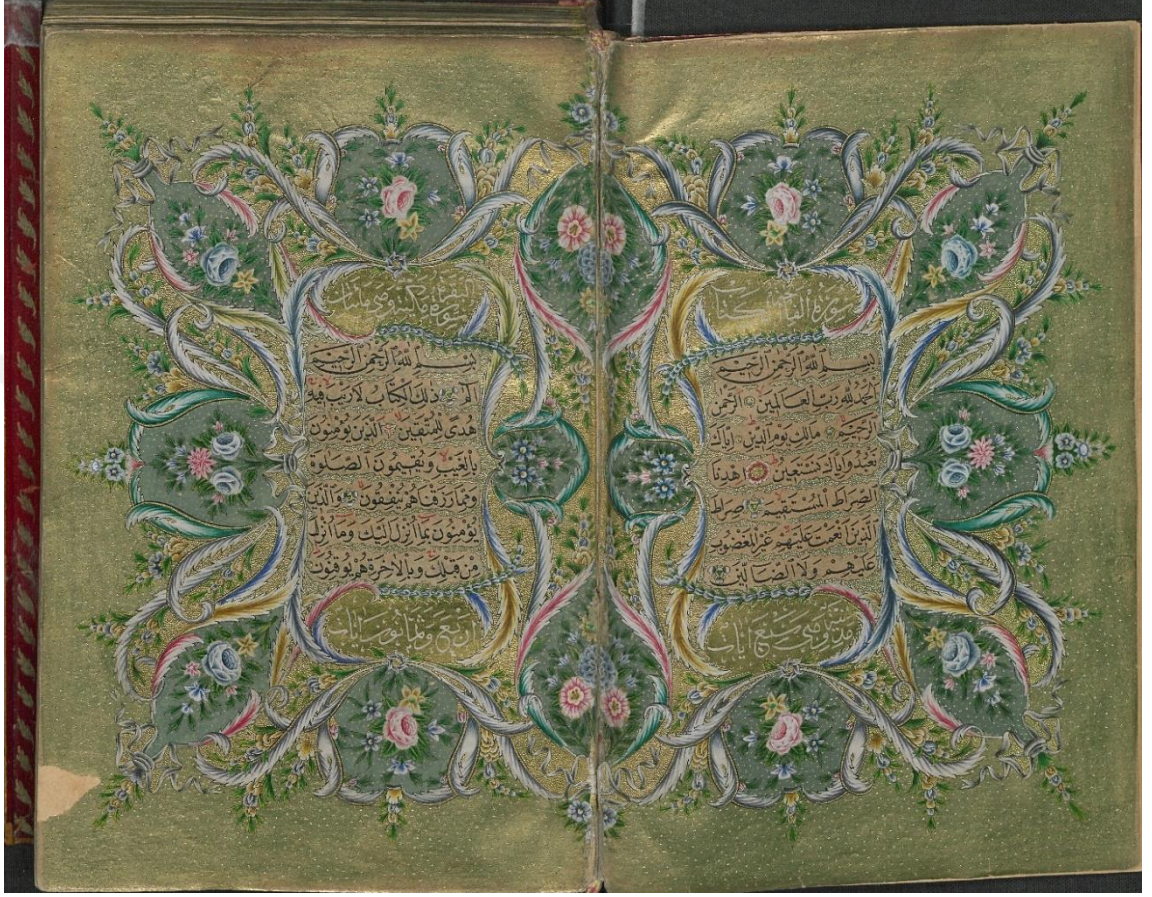 سورة الفاتحة الكتاب
بسم الله الرحمن الرحيم
الحمد لله رب العالمين الرحمن
الرحيم مالك يوم الدين اياك
نعبد واياك نستعين اهدنا
الصراط المستقيم صراط
الذين انعمت عليهم غير المغضوب
عليهم ولا الضالين
وهي سبع ايات
البقرة
سورة
بسم الله الرحمن الرحيم
الم ذلك الكتاب لا ريب فيه
هدى للمتقين الذين يؤمنون
بالغيب ويقيمون الصلوة
ومما رزقناهم ينفقون والذين
يؤمنون بما انزل اليك وما انزل
من قبلك وبالاخرة هم يوقنون
وثمانون ايات